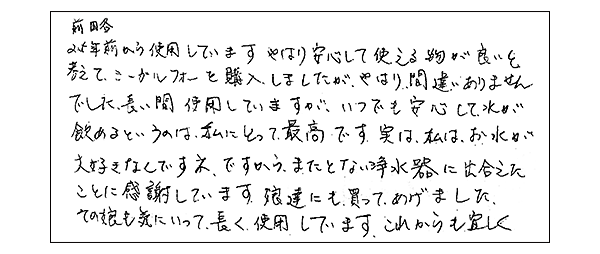 前略
25年前から使用しています やはり安心して使える物が良いと
考えて、シーガルフォーを購入しましたが、やはり間違いありません
でした、長い間使用していますが、いつでも安心して、水が
飲めるというのは、私にとって最高です。実は、私は、お水が
大好きなんですネ、ですから、またとない浄水器に出合えた
ことに感謝しています。娘達にも、買って、あげました、
その娘も気にいって、長く、使用しています。これからも宜しく